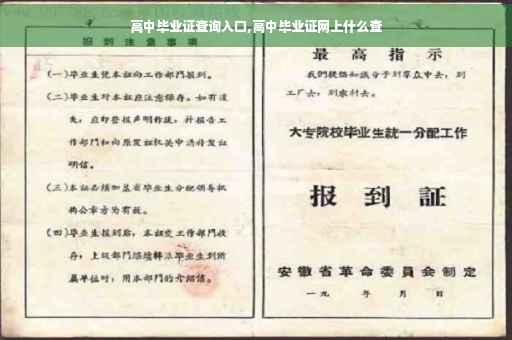 高中毕业证查询入口,高中毕业证网上什么查
报到注意事项
(一)毕业生凭本证向工作部門报到。
(二)毕业生对本证应注意保存。如有遗
失,应即登报声明作废,并报告工
作部門和向原发证机关申請补发证
明信。
(三)本证必须加盖省毕业生分配领导机
构公章方为有效。
(四)毕业生报到后,本证交工作部門收
存;上级部門繼續轉派毕业生到所
属单位时,用本部門的介紹信。
最高指示
我們提倡知識分子到羣众中去,到
工厂去,到农村去。
大专院校毕业生統一分配工作
报到証
安徽省革命委員会制定
一九 年 月 日